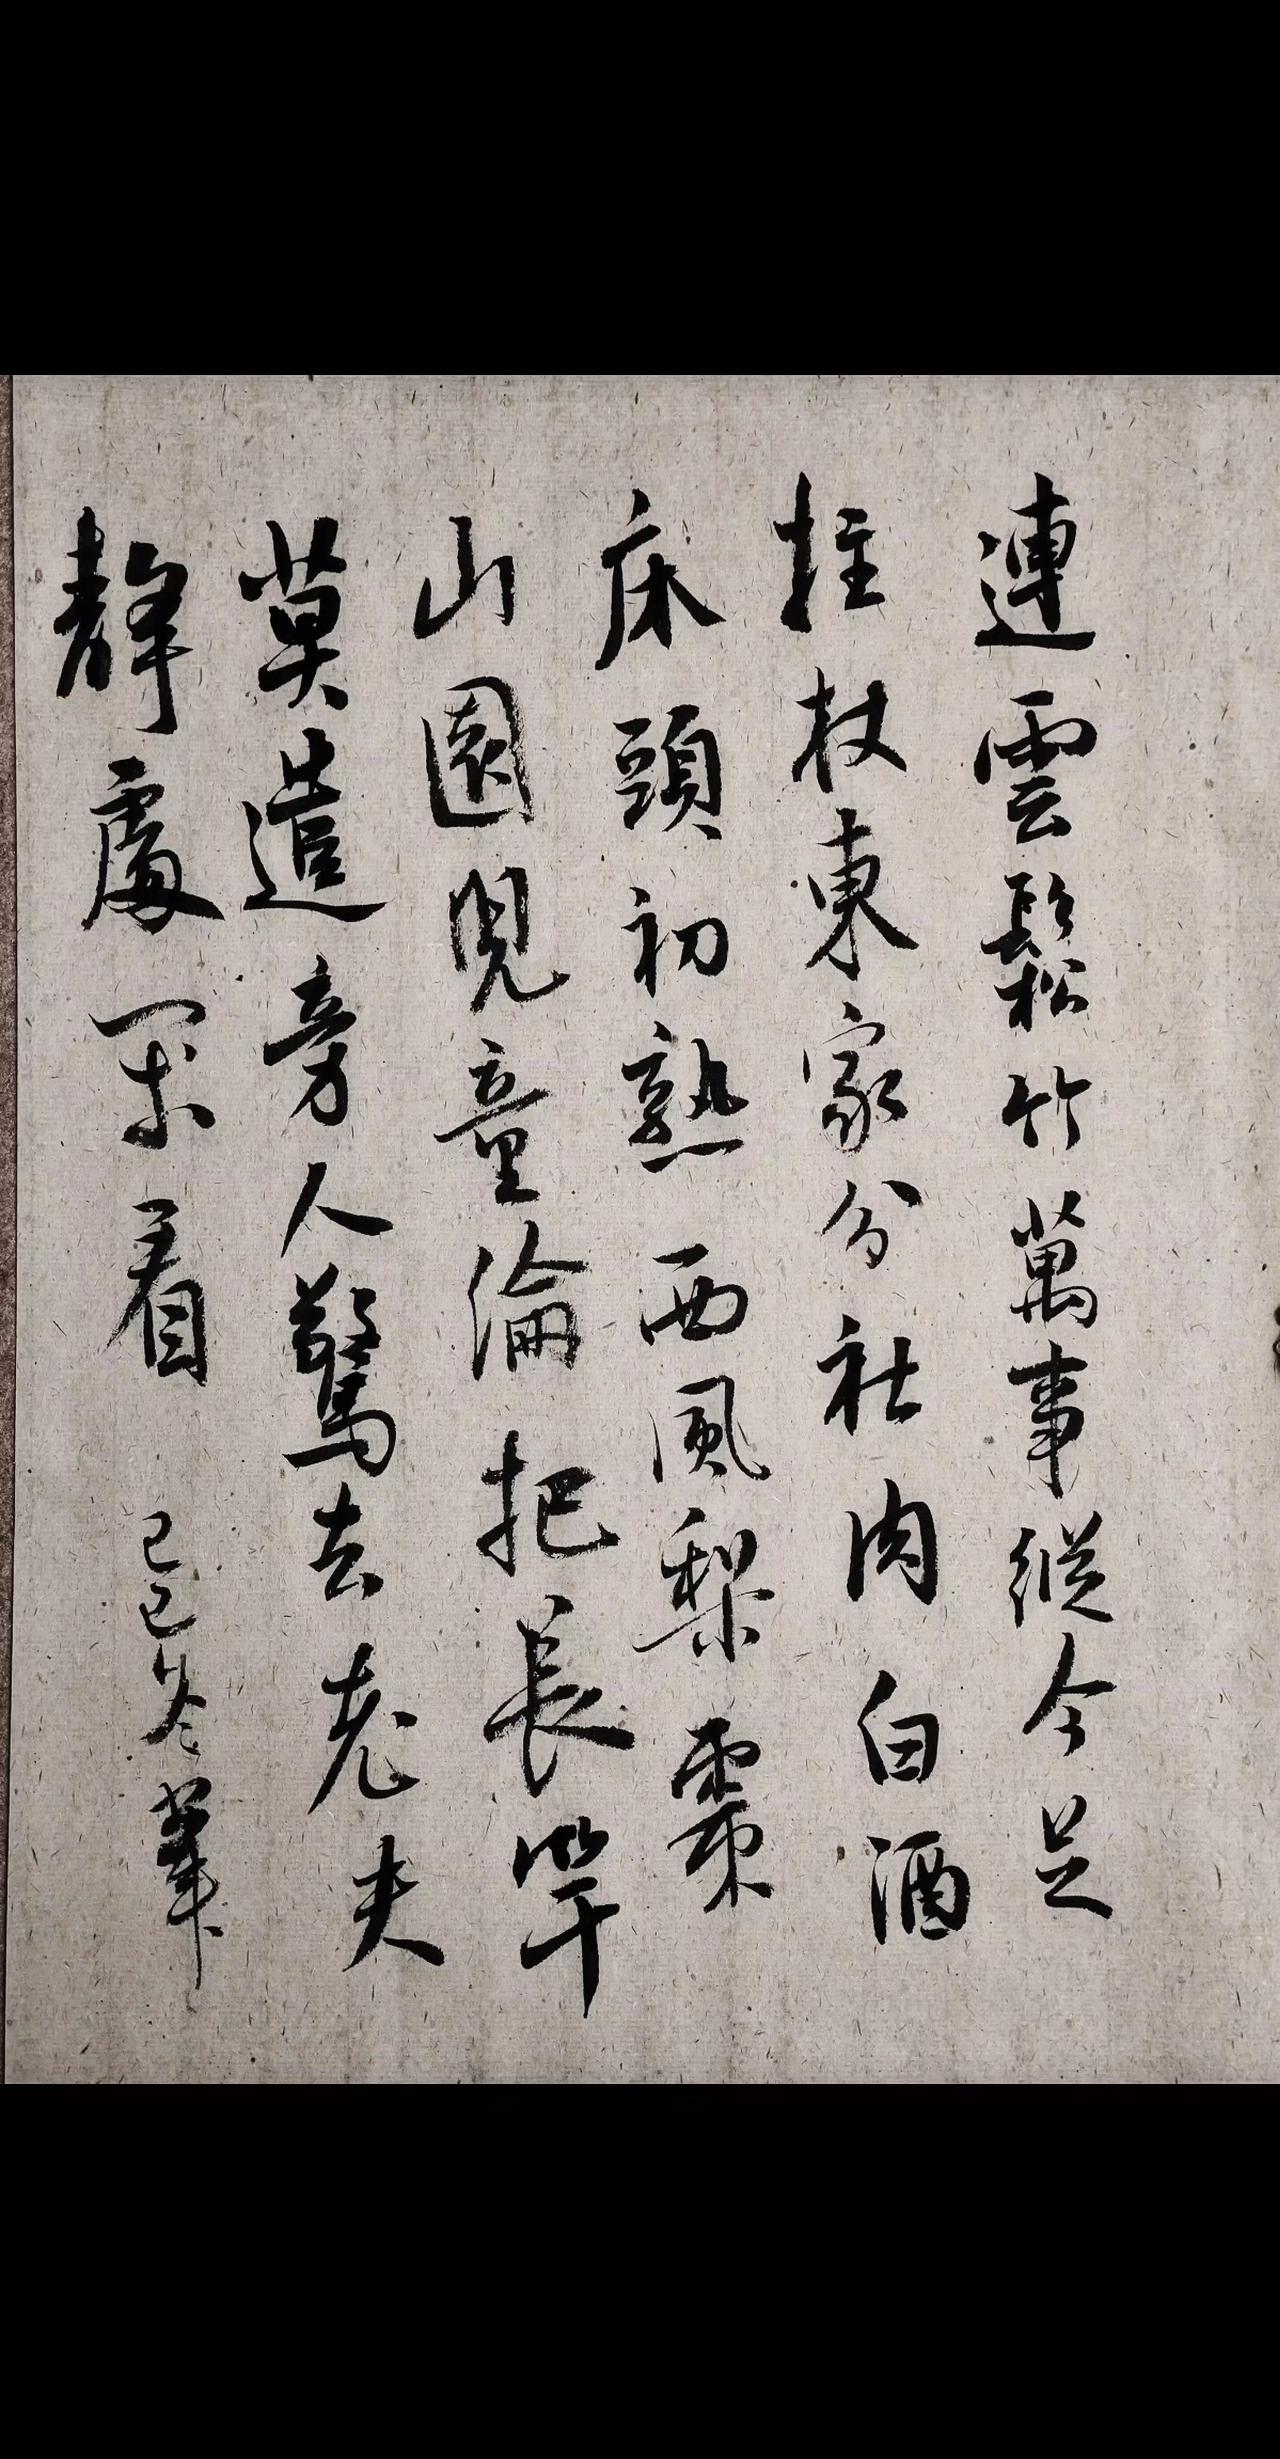 連雲鬆竹萬事縱今足
拄杖東家分社肉白酒
床頭初熟西風梨棗
山園兒童淪把長竿
莫遣旁人驚去老夫
靜處閑看 己巳冬筆